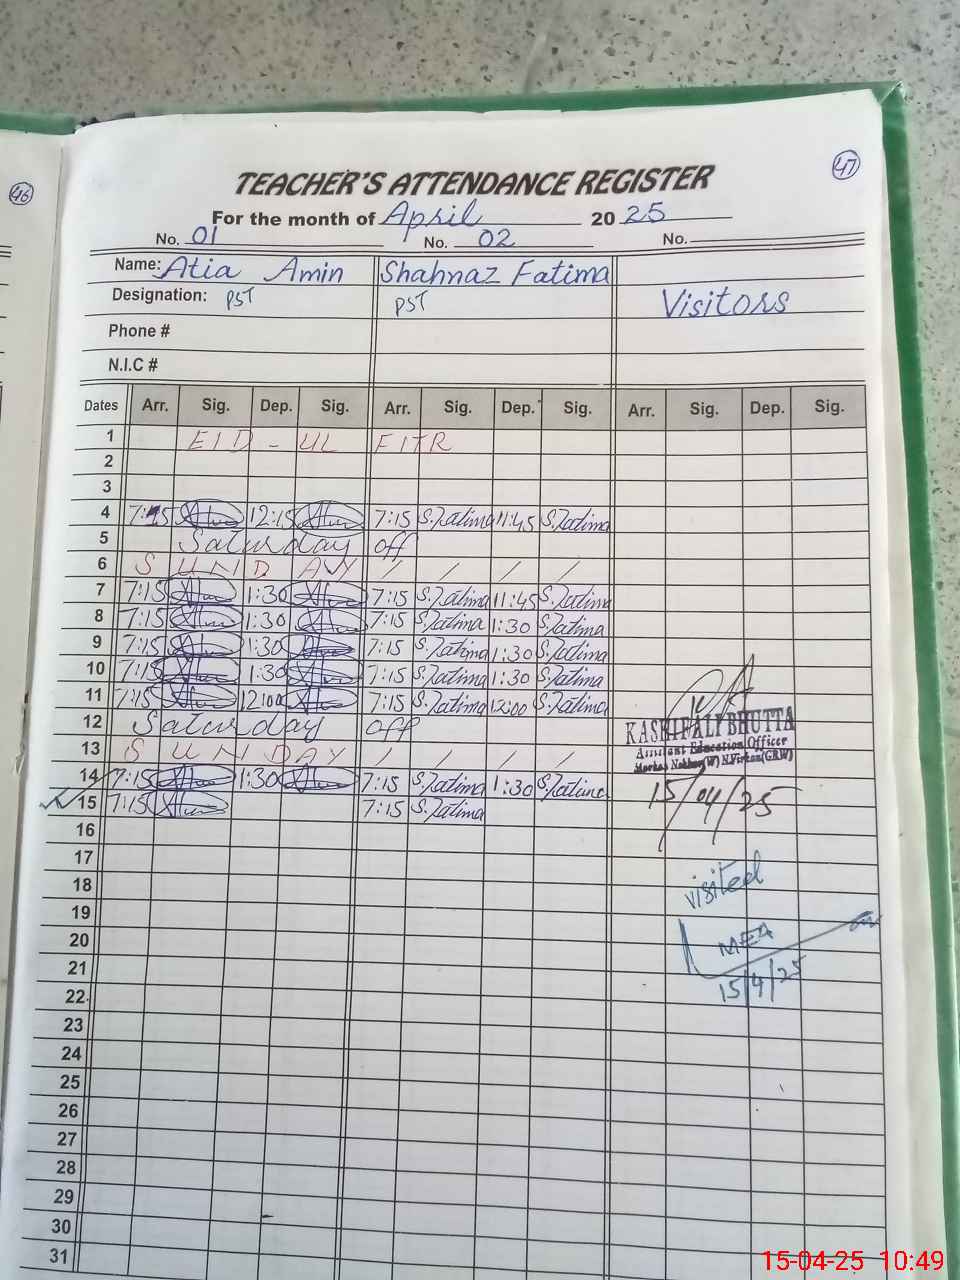 46
47
TEACHER'S ATTENDANCE REGISTER
For the month of April 2025
No. 01 No. 02 No.
Name: Atia Amin Shahnaz Fatima
Designation: PST PST Visitors
Phone #
N.I.C #
Dates Arr. Sig. Dep. Sig. Arr. Sig. Dep. Sig. Arr. Sig. Dep. Sig.
1 EID - UL FITR
2
3
4 7:15 12:15 7:15 S.Fatima 11:45 S.Fatima
5 Saturday off
6 SUNDAY / / / /
7 7:15 1:30 7:15 S.Fatima 11:45 S.Fatima
8 7:15 1:30 7:15 S.Fatima 1:30 S.Fatima
9 7:15 1:30 7:15 S.Fatima 1:30 S.Fatima
10 7:15 1:30 7:15 S.Fatima 1:30 S.Fatima
11 7:15 12:00 7:15 S.Fatima 12:00 S.Fatima
12 Saturday off
13 SUNDAY / / / /
14 7:15 1:30 7:15 S.Fatima 1:30 S.Fatima
15 7:15 7:15 S.Fatima
16
17
18
19
20
21
22
23
24
25
26
27
28
29
30
31
KASHIF ALI BHUTTA
Assistant Education Officer
Markaz Nokhar(W) N.Virkan(GRW)
15/04/25
visited
MEA
15/4/25
15-04-25 10:49